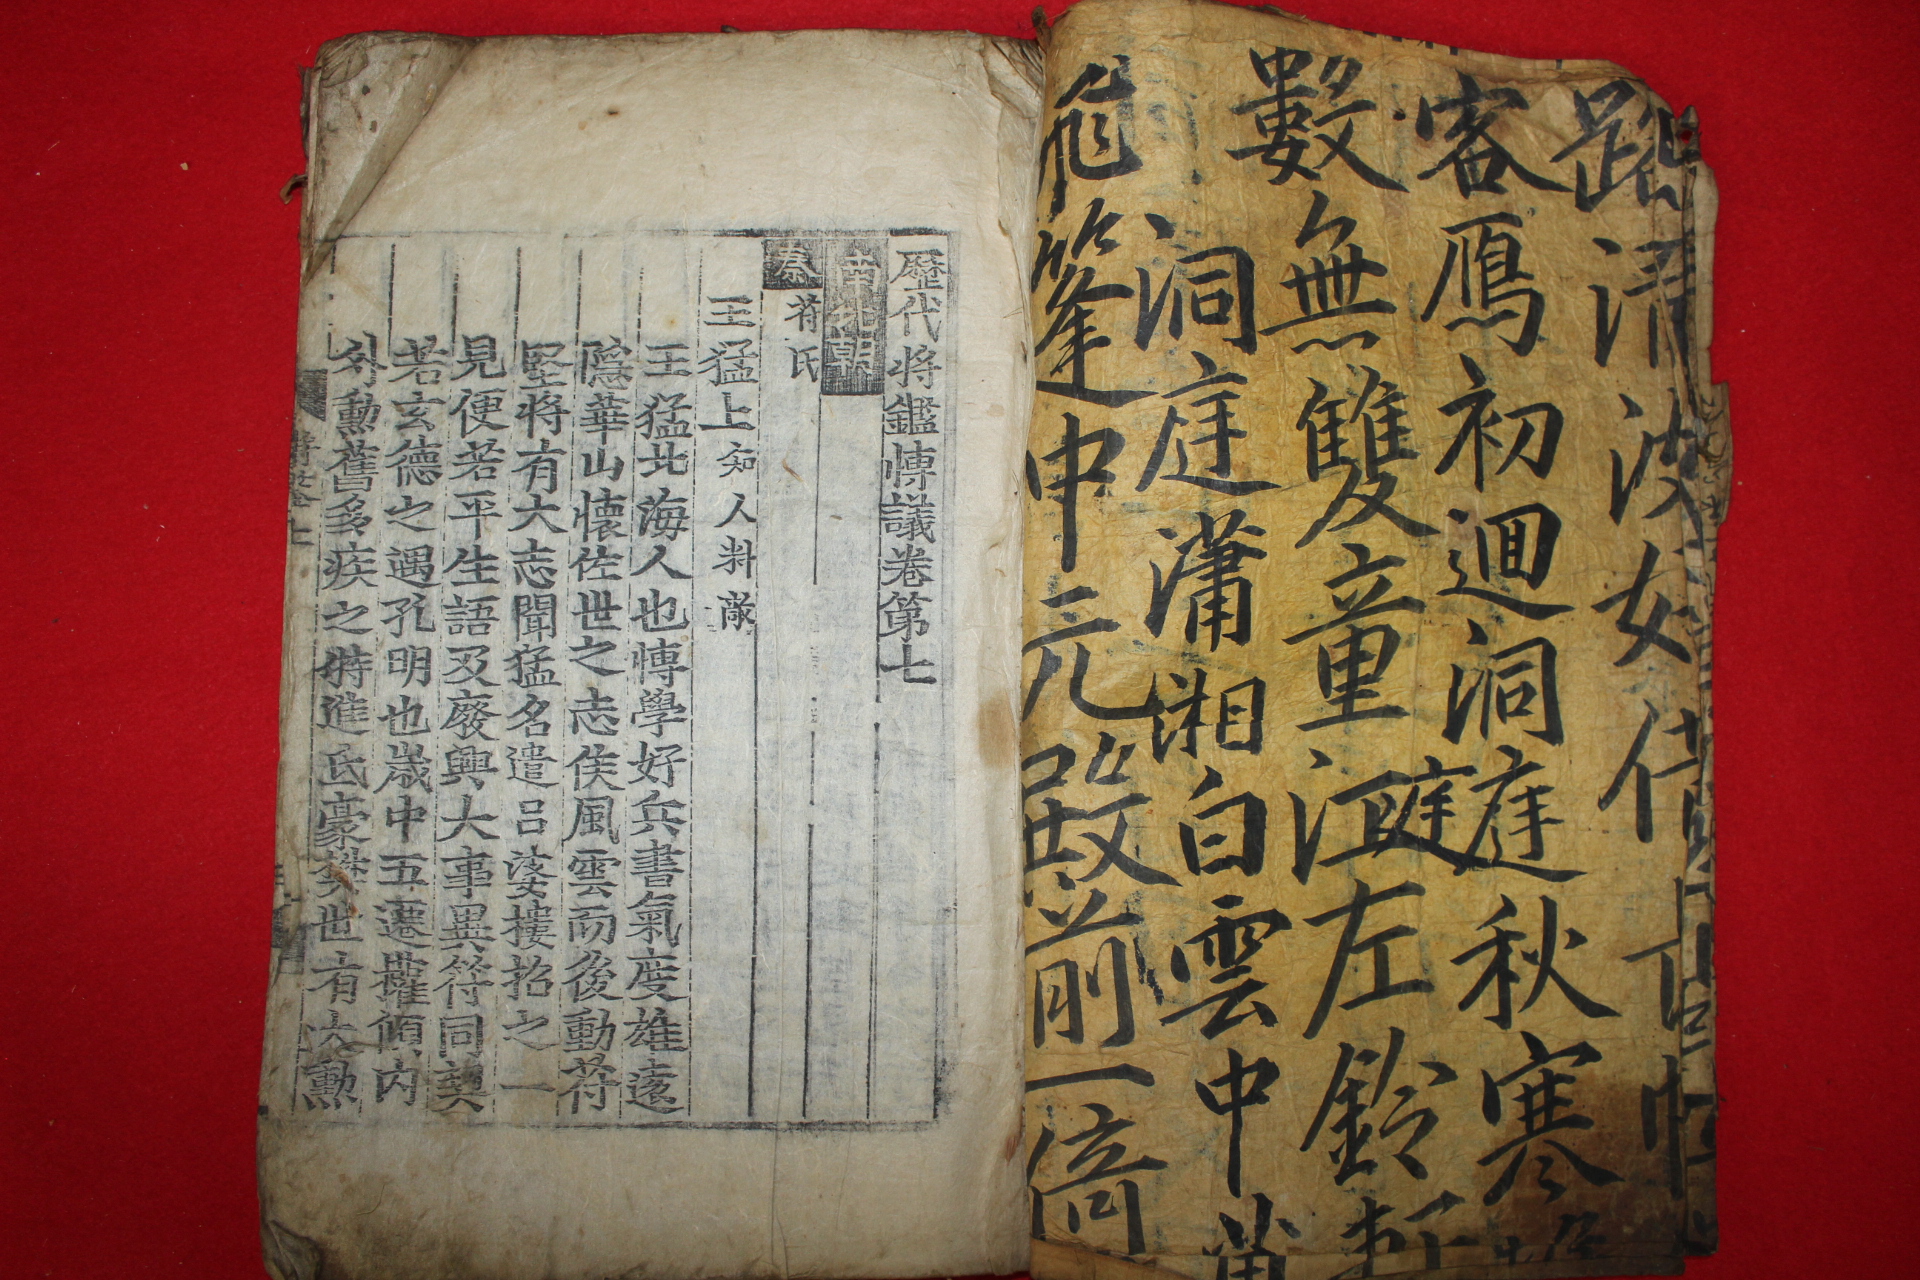 路清波女倩
客鴈初廻洞庭秋寒
數無雙童江庭左鈴軒
洞庭瀟湘白雲中
飛篷中元殿前一倚
歷代將鑑博議卷第七
南北朝
秦 苻氏
王猛上 知人料敵
王猛北海人也博學好兵書氣度雄遠
隱華山懷佐世之志俟風雲而後動苻
堅將有大志聞猛名遣呂婆樓招之一
見便若平生語及廢興大事異符同契
若玄德之遇孔明也歲中五遷權傾內
外勳舊多疾之特進氐豪樊世有大勳